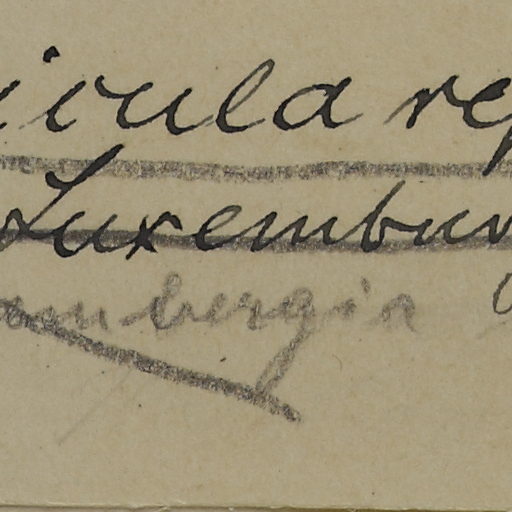 icula rep
Luxembur
ambergia